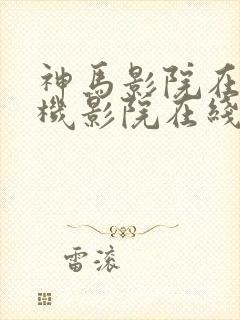 神馬影院在
機影院在綫
雷滚